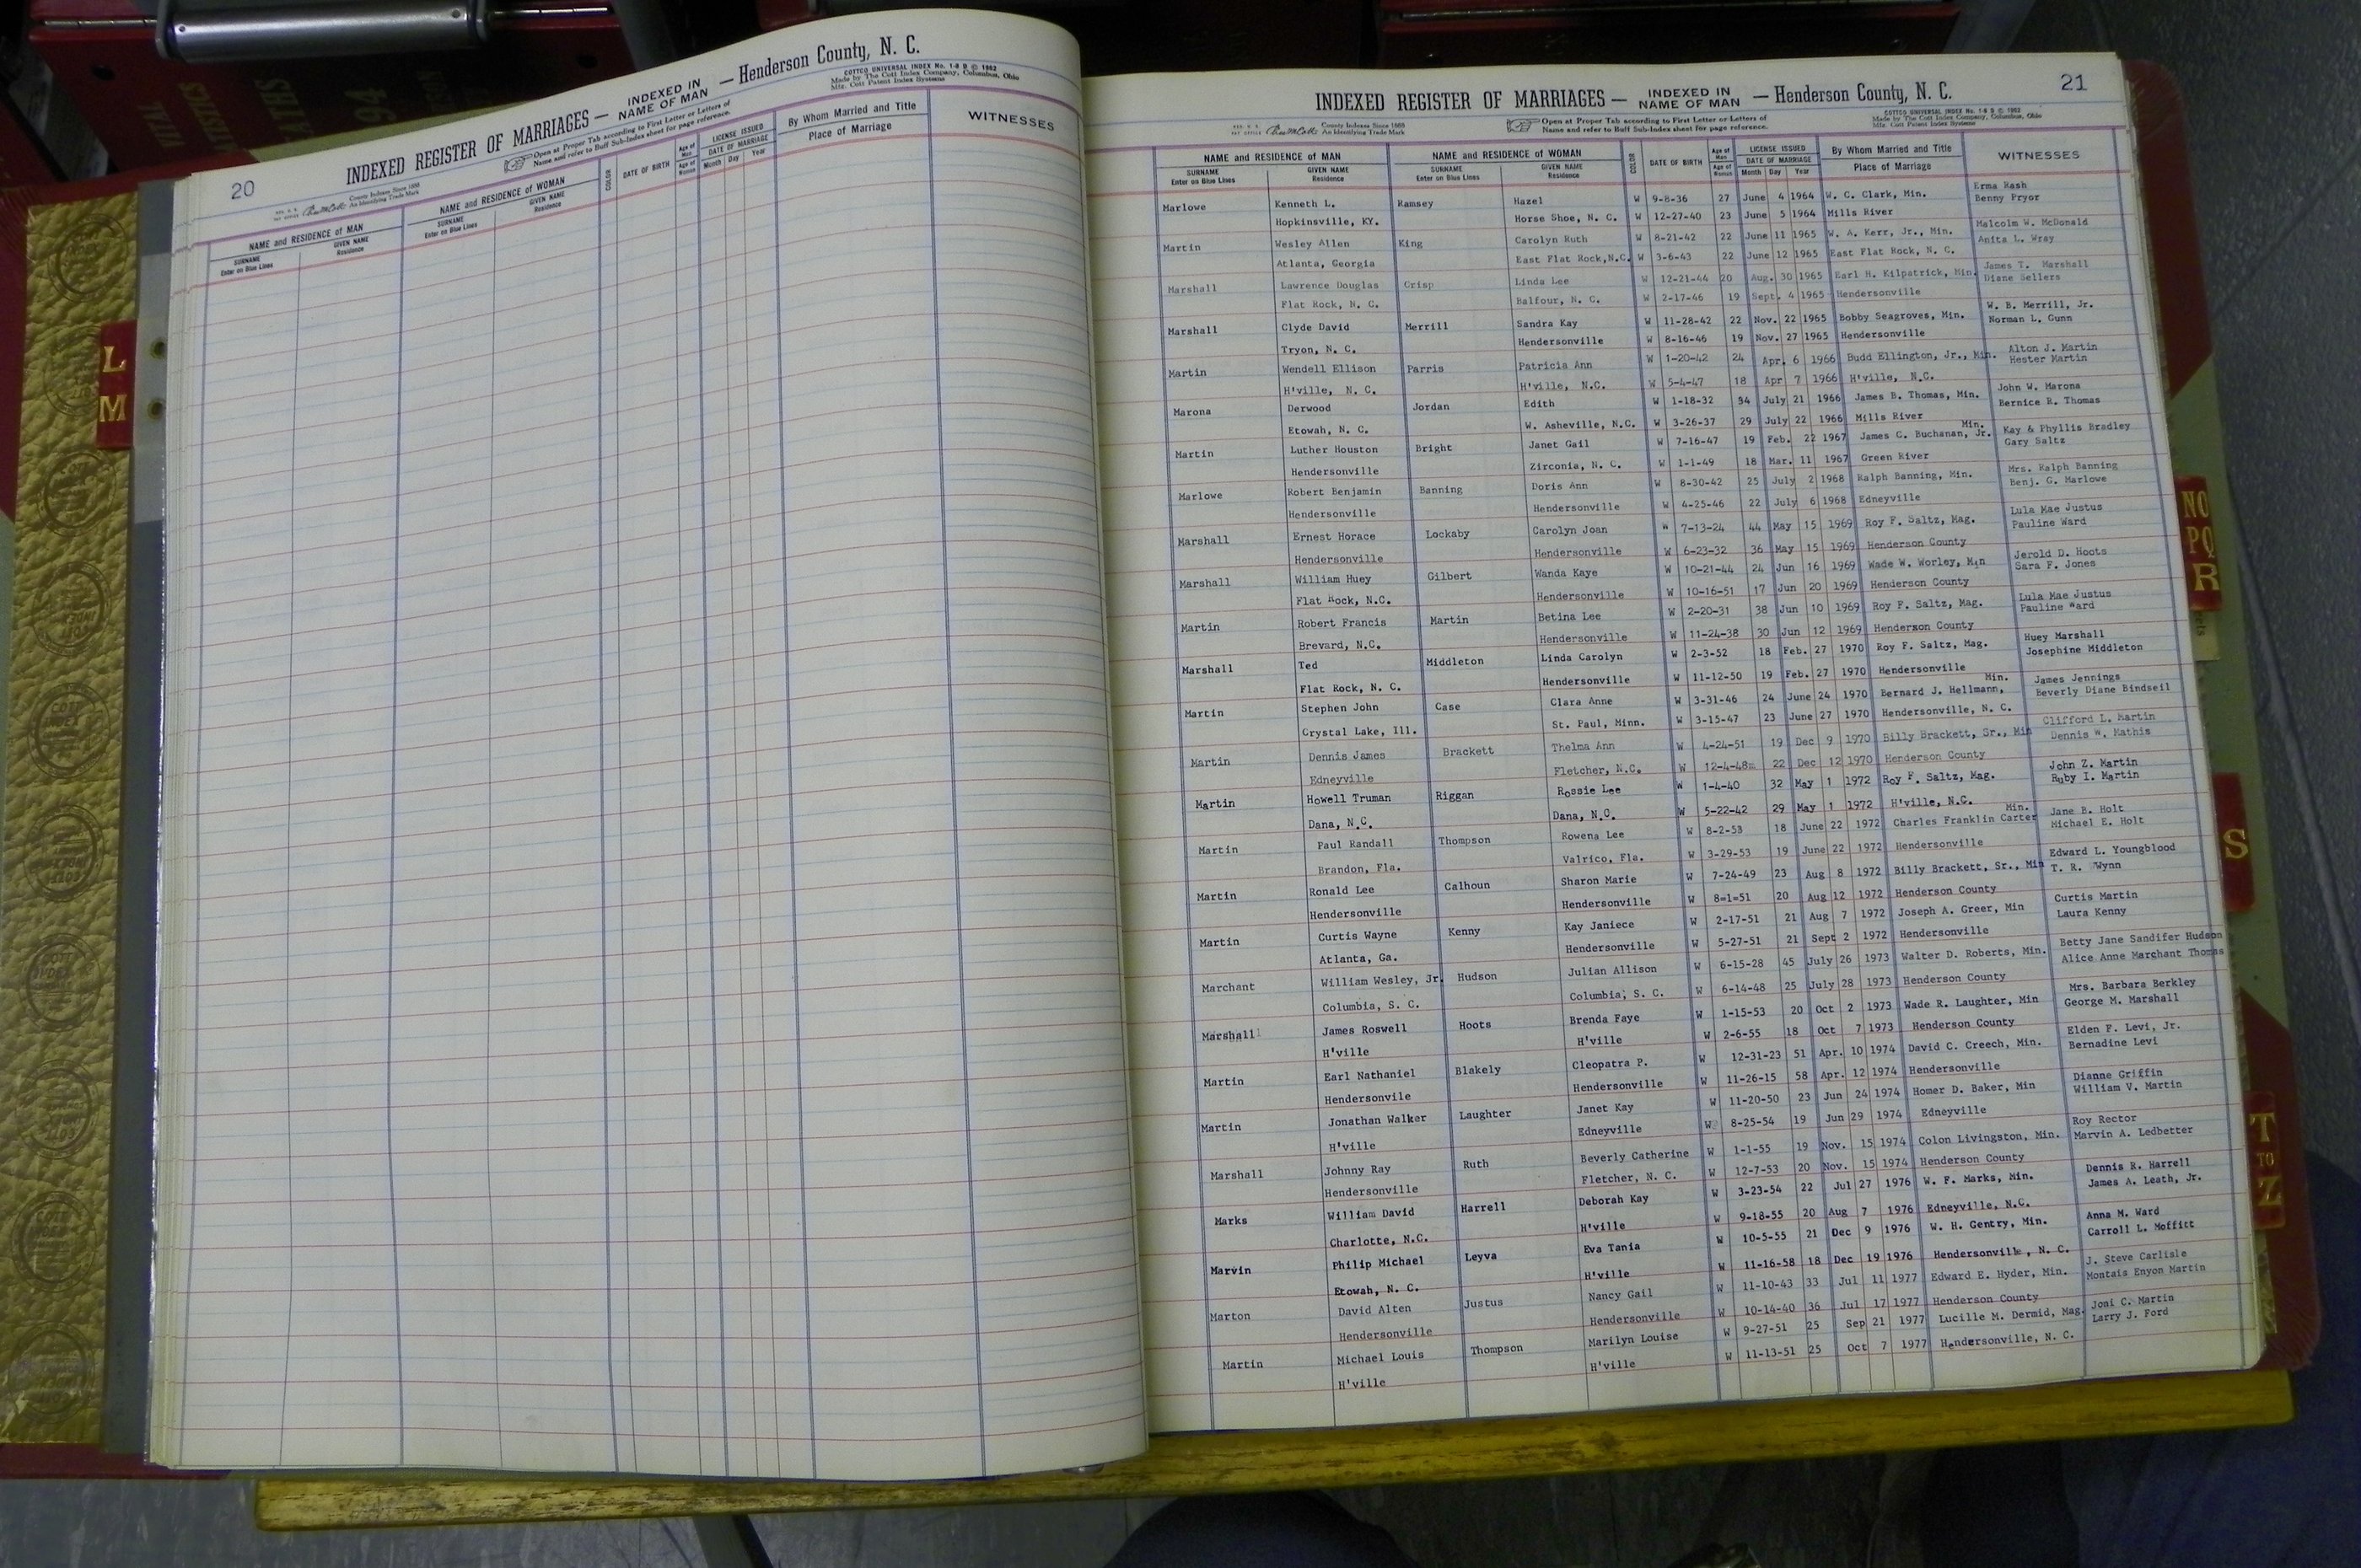 20
INDEXED REGISTER OF MARRIAGES — INDEXED IN NAME OF MAN — Henderson County, N. C.
COTTCO UNIVERSAL INDEX No. 1-6 D © 1962
Made by The Cott Index Company, Columbus, Ohio
Mfg. Cott Patent Index Systems
County Indexes Since 1888
An Identifying Trade Mark
Open at Proper Tab according to First Letter or Letters of
Name and refer to Buff Sub-Index sheet for page reference.
NAME and RESIDENCE OF MAN
SURNAME
Enter on Blue Lines
GIVEN NAME
Residence
NAME and RESIDENCE OF WOMAN
SURNAME
Enter on Blue Lines
GIVEN NAME
Residence
COLOR
DATE OF BIRTH
Age of Man
Age of Woman
LICENSE ISSUED
DATE OF MARRIAGE
Month Day Year
By Whom Married and Title
Place of Marriage
WITNESSES
L
M
21
INDEXED REGISTER OF MARRIAGES — INDEXED IN NAME OF MAN — Henderson County, N. C.
County Indexes Since 1888
An Identifying Trade Mark
Open at Proper Tab according to First Letter or Letters of
Name and refer to Buff Sub-Index sheet for page reference.
COTTCO UNIVERSAL INDEX No. 1-6 D © 1962
Made by The Cott Index Company, Columbus, Ohio
Mfg. Cott Patent Index Systems
NAME and RESIDENCE OF MAN
SURNAME
Enter on Blue Lines
GIVEN NAME
Residence
NAME and RESIDENCE OF WOMAN
SURNAME
Enter on Blue Lines
GIVEN NAME
Residence
COLOR
DATE OF BIRTH
Age of Man
Age of Woman
LICENSE ISSUED
DATE OF MARRIAGE
Month Day Year
By Whom Married and Title
Place of Marriage
WITNESSES
Marlowe Kenneth L. Ramsey Hazel W 9-8-36 27 June 4 1964 W. C. Clark, Min. Erma Rash
Hopkinsville, KY. Horse Shoe, N. C. W 12-27-40 23 June 5 1964 Mills River Benny Pryor
Martin Wesley Allen King Carolyn Ruth W 8-21-42 22 June 11 1965 W. A. Kerr, Jr., Min. Malcolm W. McDonald
Atlanta, Georgia East Flat Rock,N.C. W 3-6-43 22 June 12 1965 East Flat Rock, N. C. Anita L. Wray
Marshall Lawrence Douglas Crisp Linda Lee W 12-21-44 20 Aug. 30 1965 Earl H. Kilpatrick, Min. James T. Marshall
Flat Rock, N. C. Balfour, N. C. W 2-17-46 19 Sept. 4 1965 Hendersonville Diane Sellers
Marshall Clyde David Merrill Sandra Kay W 11-28-42 22 Nov. 22 1965 Bobby Seagroves, Min. W. B. Merrill, Jr.
Tryon, N. C. Hendersonville W 8-16-46 19 Nov. 27 1965 Hendersonville Norman L. Gunn
Martin Wendell Ellison Parris Patricia Ann W 1-20-42 24 Apr. 6 1966 Budd Ellington, Jr., Min. Alton J. Martin
H'ville, N. C. H'ville, N.C. W 5-4-47 18 Apr 7 1966 H'ville, N.C. Hester Martin
Marona Derwood Jordan Edith W 1-18-32 34 July 21 1966 James B. Thomas, Min. John W. Marona
Etowah, N. C. W. Asheville, N.C. W 3-26-37 29 July 22 1966 Mills River Bernice R. Thomas
Martin Luther Houston Bright Janet Gail W 7-16-47 19 Feb. 22 1967 James C. Buchanan, Jr. Min. Kay & Phyllis Bradley
Hendersonville Zirconia, N. C. W 1-1-49 18 Mar. 11 1967 Green River Gary Saltz
Marlowe Robert Benjamin Banning Doris Ann W 8-30-42 25 July 2 1968 Ralph Banning, Min. Mrs. Ralph Banning
Hendersonville Hendersonville W 4-25-46 22 July 6 1968 Edneyville Benj. G. Marlowe
Marshall Ernest Horace Lockaby Carolyn Joan W 7-13-24 44 May 15 1969 Roy F. Saltz, Mag. Lula Mae Justus
Hendersonville Hendersonville W 6-23-32 36 May 15 1969 Henderson County Pauline Ward
Marshall William Huey Gilbert Wanda Kaye W 10-21-44 24 Jun 16 1969 Wade W. Worley, Min Jerold D. Hoots
Flat Rock, N.C. Hendersonville W 10-16-51 17 Jun 20 1969 Henderson County Sara F. Jones
Martin Robert Francis Martin Betina Lee W 2-20-31 38 Jun 10 1969 Roy F. Saltz, Mag. Lula Mae Justus
Brevard, N.C. Hendersonville W 11-24-38 30 Jun 12 1969 Henderson County Pauline Ward
Marshall Ted Middleton Linda Carolyn W 2-3-52 18 Feb. 27 1970 Roy F. Saltz, Mag. Huey Marshall
Flat Rock, N. C. Hendersonville W 11-12-50 19 Feb. 27 1970 Hendersonville Josephine Middleton
Martin Stephen John Case Clara Anne W 3-31-46 24 June 24 1970 Bernard J. Hellmann, Min. James Jennings
Crystal Lake, Ill. St. Paul, Minn. W 3-15-47 23 June 27 1970 Hendersonville, N. C. Beverly Diane Bindseil
Martin Dennis James Brackett Thelma Ann W 4-24-51 19 Dec 9 1970 Billy Brackett, Sr., Min Clifford L. Martin
Edneyville Fletcher, N.C. W 12-4-48 22 Dec 12 1970 Henderson County Dennis W. Mathis
Martin Howell Truman Riggan Rossie Lee W 1-4-40 32 May 1 1972 Roy F. Saltz, Mag. John Z. Martin
Dana, N.C. Dana, N.C. W 5-22-42 29 May 1 1972 H'ville, N.C. Ruby I. Martin
Martin Paul Randall Thompson Rowena Lee W 8-2-53 18 June 22 1972 Charles Franklin Carter Min. Jane B. Holt
Brandon, Fla. Valrico, Fla. W 3-29-53 19 June 22 1972 Hendersonville Michael E. Holt
Martin Ronald Lee Calhoun Sharon Marie W 7-24-49 23 Aug 8 1972 Billy Brackett, Sr., Min Edward L. Youngblood
Hendersonville Hendersonville W 8=1=51 20 Aug 12 1972 Henderson County T. R. Wynn
Martin Curtis Wayne Kenny Kay Janiece W 2-17-51 21 Aug 7 1972 Joseph A. Greer, Min Curtis Martin
Atlanta, Ga. Hendersonville W 5-27-51 21 Sept 2 1972 Hendersonville Laura Kenny
Marchant William Wesley, Jr. Hudson Julian Allison W 6-15-28 45 July 26 1973 Walter D. Roberts, Min. Betty Jane Sandifer Hudson
Columbia, S. C. Columbia, S. C. W 6-14-48 25 July 28 1973 Henderson County Alice Anne Marchant Thomas
Marshall James Roswell Hoots Brenda Faye W 1-15-53 20 Oct 2 1973 Wade R. Laughter, Min Mrs. Barbara Berkley
H'ville H'ville W 2-6-55 18 Oct 7 1973 Henderson County George M. Marshall
Martin Earl Nathaniel Blakely Cleopatra P. W 12-31-23 51 Apr. 10 1974 David C. Creech, Min. Elden F. Levi, Jr.
Hendersonvile Hendersonville W 11-26-15 58 Apr. 12 1974 Hendersonville Bernadine Levi
Martin Jonathan Walker Laughter Janet Kay W 11-20-50 23 Jun 24 1974 Homer D. Baker, Min Dianne Griffin
H'ville Edneyville W 8-25-54 19 Jun 29 1974 Edneyville William V. Martin
Marshall Johnny Ray Ruth Beverly Catherine W 1-1-55 19 Nov. 15 1974 Colon Livingston, Min. Roy Rector
Hendersonville Fletcher, N. C. W 12-7-53 20 Nov. 15 1974 Henderson County Marvin A. Ledbetter
Marks William David Harrell Deborah Kay W 3-23-54 22 Jul 27 1976 W. F. Marks, Min. Dennis R. Harrell
Charlotte, N.C. H'ville W 9-18-55 20 Aug 7 1976 Edneyville, N.C. James A. Leath, Jr.
Marvin Philip Michael Leyva Eva Tania W 10-5-55 21 Dec 9 1976 W. H. Gentry, Min. Anna M. Ward
Etowah, N. C. H'ville W 11-16-58 18 Dec 19 1976 Hendersonville, N. C. Carroll L. Moffitt
Marton David Alten Justus Nancy Gail W 11-10-43 33 Jul 11 1977 Edward E. Hyder, Min. J. Steve Carlisle
Hendersonville Hendersonville W 10-14-40 36 Jul 17 1977 Henderson County Montais Enyon Martin
Martin Michael Louis Thompson Marilyn Louise W 9-27-51 25 Sep 21 1977 Lucille M. Dermid, Mag. Joni C. Martin
H'ville H'ville W 11-13-51 25 Oct 7 1977 Hendersonville, N. C. Larry J. Ford
NO
PQ
R
S
T
TO
Z